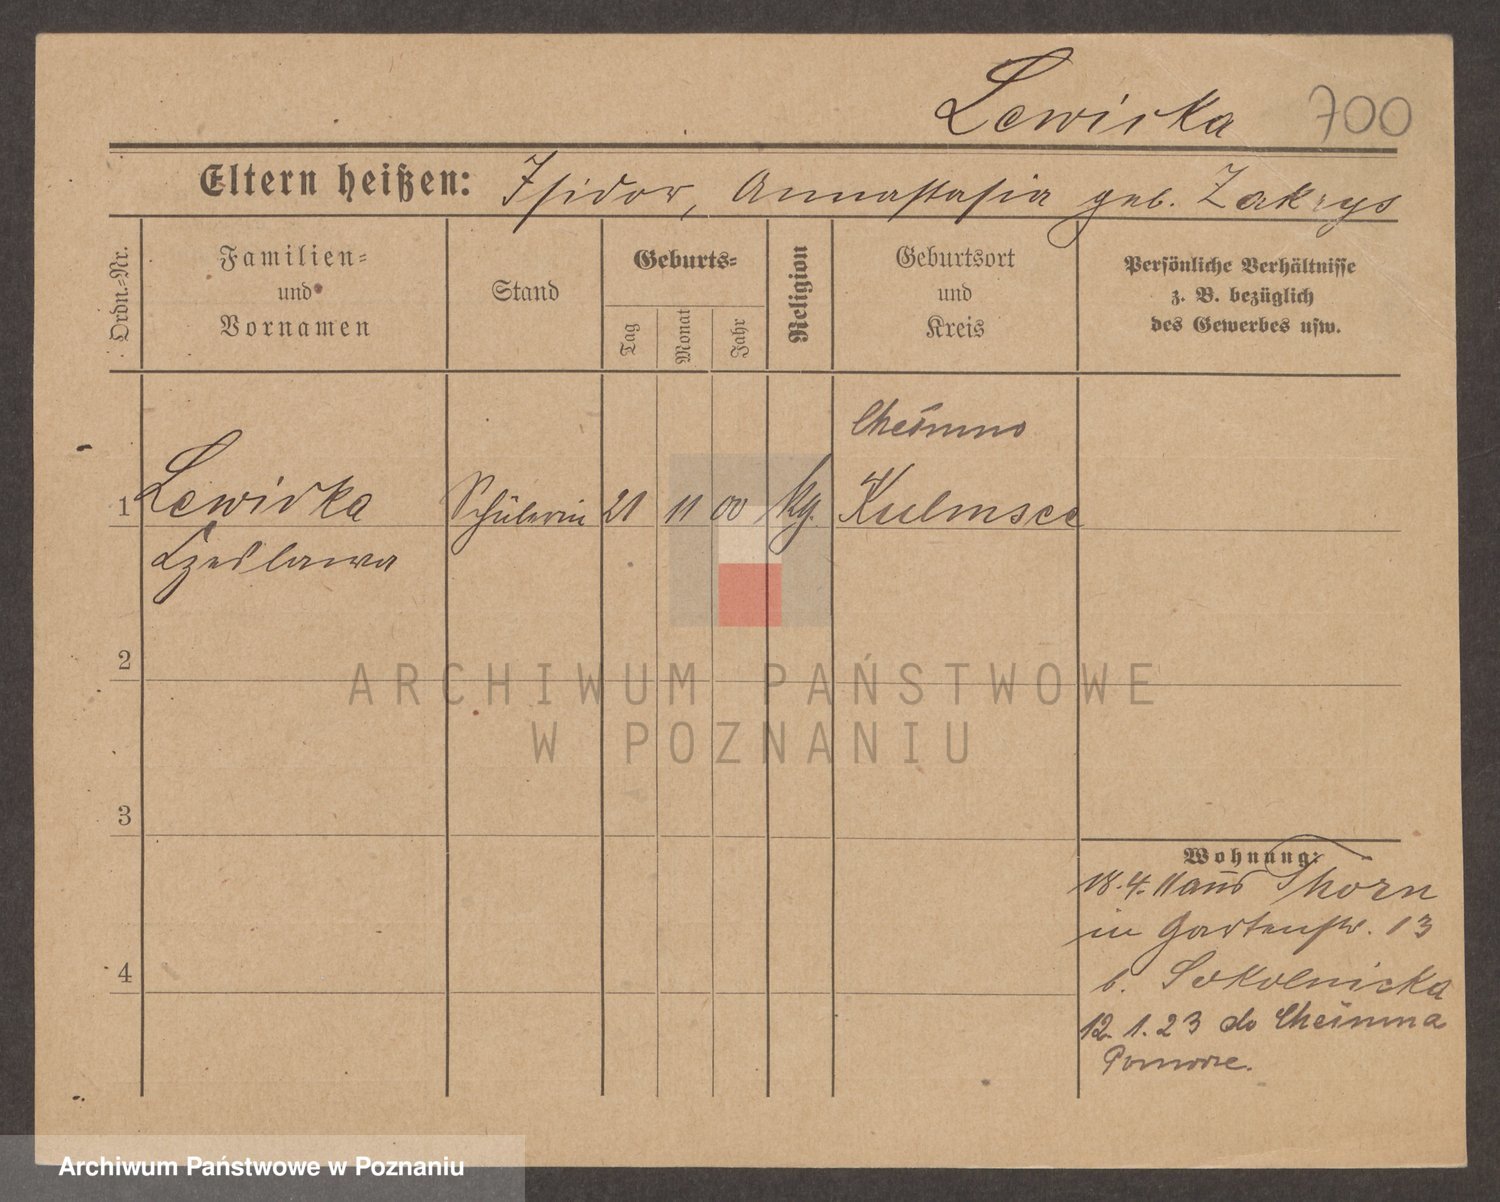 Lewicka 700
Eltern heißen: Isidor, Annastasia geb. Zakrys
Ordn.-Nr.
Familien-
und
Vornamen
Stand
Geburts-
Tag
Monat
Jahr
Religion
Geburtsort
und
Kreis
Persönliche Verhältnisse
z. B. bezüglich
des Gewerbes usw.
1 Lewicka Schülerin 21 11 00 kg. Kulmsee
Czeslawa
2
3
4
Wohnung:
18.4.11 aus Thorn
in Gartenstr. 13
b. Sokolnicka
12.1.23 do
ARCHIWUM PAŃSTWOWE
W POZNANIU
Archiwum Państwowe w Poznaniu